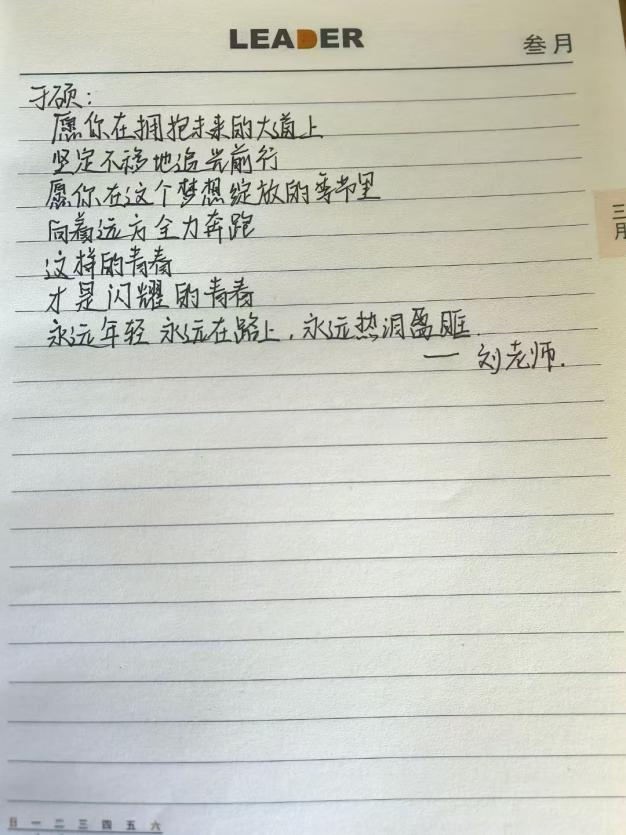 LEADER
叁月
于硕：
愿你在拥抱未来的大道上
坚定不移地追光前行
愿你在这个梦想绽放的季节里
向着远方全力奔跑
三月
这样的青春
才是闪耀的青春
永远年轻 永远在路上，永远热泪盈眶.
— 刘老师.
日 一 二 三 四 五 六